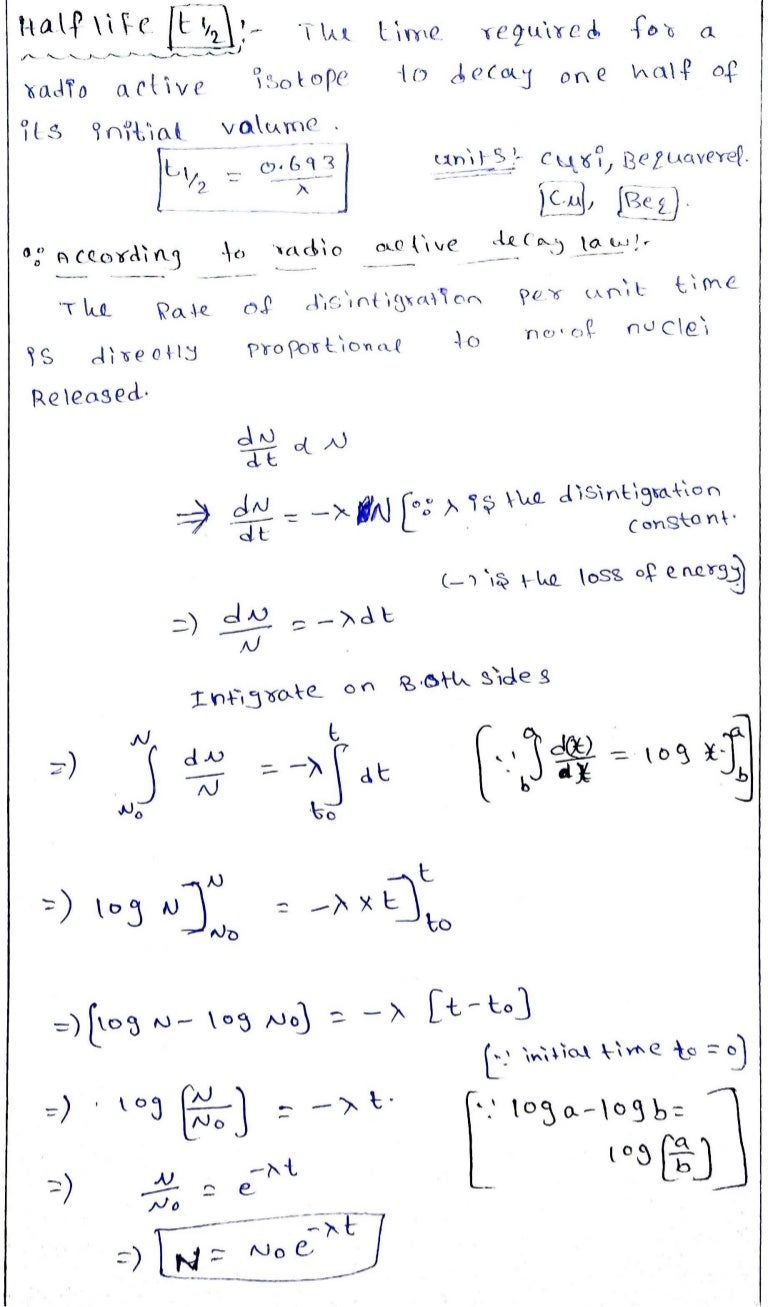 Half life [t 1/2] :- The time required for a
radio active isotope to decay one half of
its initial valume.
t1/2 = 0.693/λ units:- curi, Bequaverel.
[Cu], [Beq].
∵ According to radio active decay law:-
The Rate of disintigration per unit time
is directly proportional to no. of nuclei
Released.
dN/dt α N
⇒ dN/dt = -λN [∵ λ is the disintigration
constant.
(-) is the loss of energy]
=) dN/N = -λdt
Intigrate on Both sides
=) ∫_{N0}^{N} dN/N = -λ ∫_{t0}^{t} dt [∵ ∫_{b}^{a} d(x)/dx = log x]_{b}^{a}]
=) log N]_{N0}^{N} = -λ × t]_{t0}^{t}
=) [log N - log N0] = -λ [t - t0]
[∵ initial time t0 = 0]
=) log [N/N0] = -λt. [∵ log a - log b =
log [a/b]]
=) N/N0 = e^{-λt}
=) N = N0 e^{-λt}